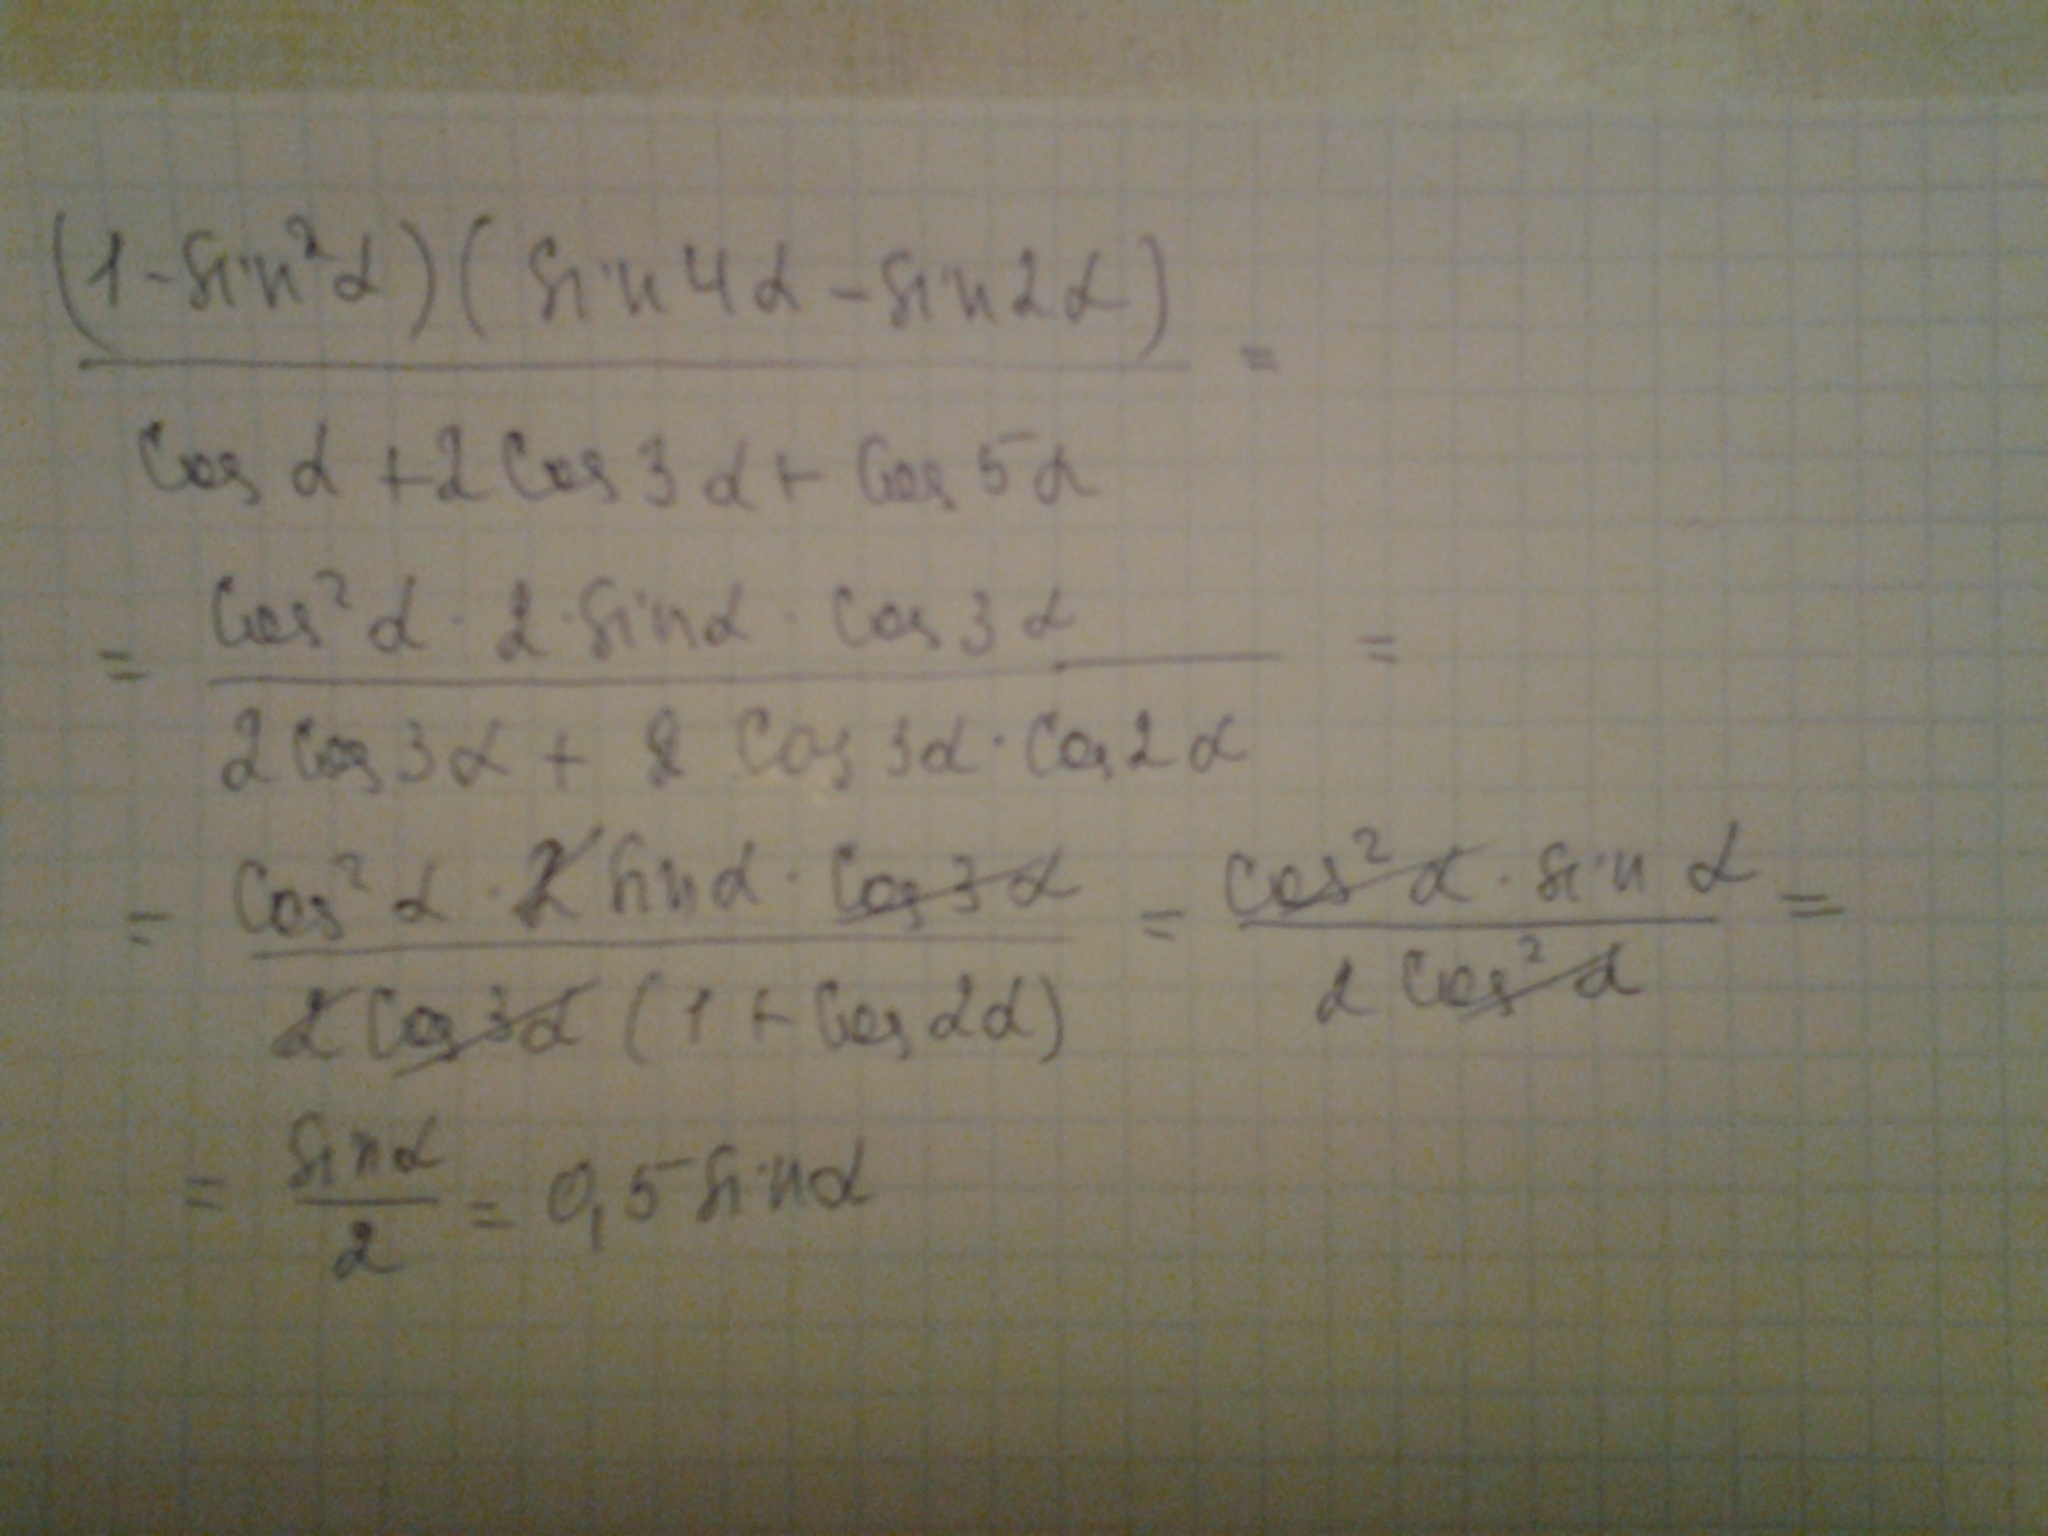 (1-sin²α)(sin4α-sin2α) =
cosα+2cos3α+cos5α
= cos²α·2·sinα·cos3α =
2cos3α+2cos3α·cos2α
= cos²α·2sinα·cos3α = cos²α·sinα =
2cos3α(1+cos2α) 2cos²α
= sinα = 0,5sinα
2